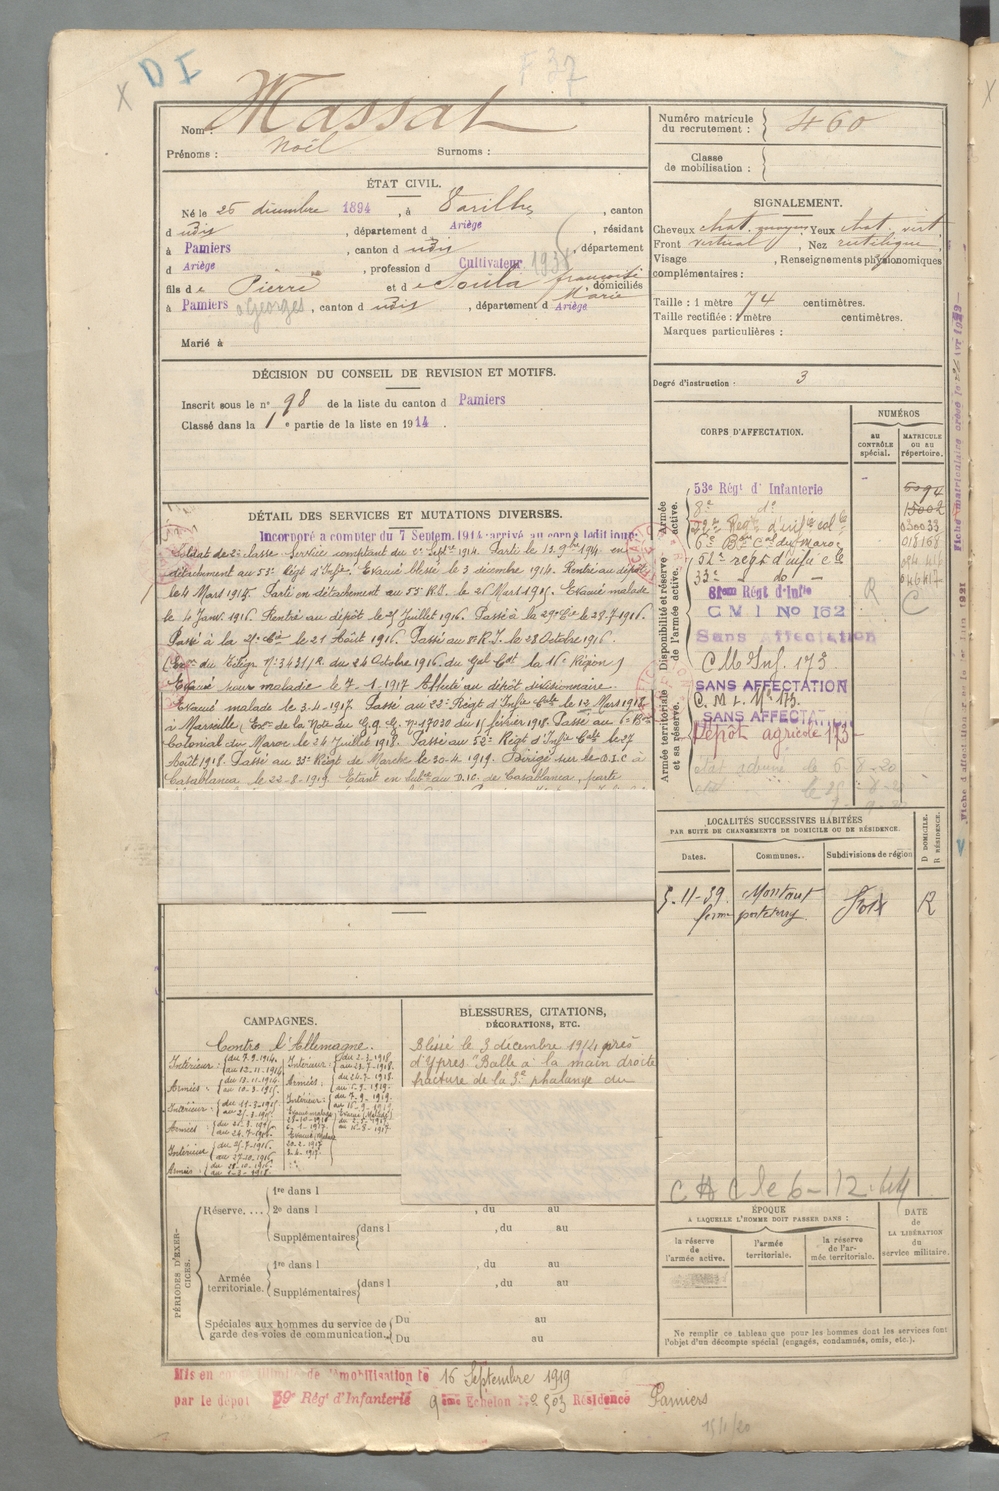 D I
F 37
X
Nom : Massat
Prénoms : Noël Surnoms :
Numéro matricule du recrutement : 460
Classe de mobilisation :
ÉTAT CIVIL.
Né le 25 décembre 1894, à Varilhes, canton
d udit, département d Ariège, résidant
à Pamiers, canton d udit, département
d Ariège, profession d Cultivateur 1938
fils de Pierre et de Soula françoise Marie, domiciliés
à Pamiers à Georges, canton d udit, département d Ariège
Marié à
SIGNALEMENT.
Cheveux chat. moyen Yeux chat. vert
Front vertical, Nez rectiligne,
Visage, Renseignements physionomiques
complémentaires :
Taille : 1 mètre 74 centimètres.
Taille rectifiée : 1 mètre centimètres.
Marques particulières :
Degré d'instruction : 3
DÉCISION DU CONSEIL DE REVISION ET MOTIFS.
Inscrit sous le n° 98 de la liste du canton d Pamiers
Classé dans la 1e partie de la liste en 1914.
DÉTAIL DES SERVICES ET MUTATIONS DIVERSES.
Incorporé à compter du 7 Septem. 1914 arrivé au corps ledit jour
Soldat de 2e classe. Service comptant du 1er Septbre 1914. Parti le 12 9bre 1914 en
détachement au 53e Régt d'Infie. Evacué blessé le 3 décembre 1914. Rentré au dépôt
le 4 Mars 1915. Parti en détachement au 53e R.I. le 21 Mars 1915. Evacué malade
le 4 Janv. 1916. Rentré au dépôt le 25 Juillet 1916. Passé à la 29e Cie le 28-7-1916.
Passé à la 27e Cie le 21 Août 1916. Passé au 8e R.I. le 28 Octobre 1916.
(Exon du Télégr. N° 3431/R du 24 Octobre 1916. du Gal Cdt la 16e Région)
Evacué pour maladie le 7-1-1917 Affecté au dépôt divisionnaire.
Evacué malade le 3.4-1917. Passé au 22e Régt d'Infie Cale le 12 Mars 1918
à Marseille (Exon de la Note du G.Q.G. N° 17038 du 15 février 1918. Passé au 6e Bon
Colonial du Maroc le 24 Juillet 1918. Passé au 52e Régt d'Infie Cale le 27
Août 1918. Passé au 33e Régt de Marche le 30-4-1919. Dirigé sur le D.I.C à
Casablanca le 22-8-1919. Etant en subce du D.I.C. de Casablanca, parti
CORPS D'AFFECTATION.
NUMÉROS
AU CONTRÔLE SPÉCIAL.
MATRICULE OU AU RÉPERTOIRE.
Armée active.
Disponibilité et réserve de l'armée active.
Armée territoriale et sa réserve.
53e Régt d'Infanterie 5094
8e do 15002
22e Regt d'infie colle 030033
6e Bon Cal du Maroc 018168
52e regt d'infie cle
33e do
81eme Régt d'Infie R
C M I No 162 C
Sans Affectation
C.M Inf. 173
SANS AFFECTATION
C. M. I. N° 173.
SANS AFFECTATION
Dépôt agricole 173
le 6-8-20
LOCALITÉS SUCCESSIVES HABITÉES
PAR SUITE DE CHANGEMENTS DE DOMICILE OU DE RÉSIDENCE.
Dates. Communes. Subdivisions de région
D DOMICILE. R RÉSIDENCE.
5-11-39 Montaut Foix R
ferme
C H C le 6-12
CAMPAGNES.
Contre l'Allemagne.
Intérieur : du 7-9-1914. au 12-11-1914
Armées : du 13-11-1914. au 10-3-1915.
Intérieur : du 11-3-1915 au 21-3-1915.
Intérieur du 25-7-1916. au 27-10-1916.
Armées : du 28-10-1916. au 1-3-1918.
Intérieur : du 2-3-1918 au 23-7-1918.
Armées : du 24-7-1918.
BLESSURES, CITATIONS,
DÉCORATIONS, ETC.
Blessé le 3 décembre 1914 près
d'Ypres "Balle à la main droite
fracture de la 3e phalange du
PÉRIODES D'EXERCICES.
Réserve....
1re dans l
2e dans l , du au
Supplémentaires dans l , du au
Armée territoriale.
1re dans l , du au
Supplémentaires dans l , du au
Spéciales aux hommes du service de garde des voies de communication. Du au
Du au
ÉPOQUE
A LAQUELLE L'HOMME DOIT PASSER DANS :
la réserve de l'armée active.
l'armée territoriale.
la réserve de l'armée territoriale.
DATE de LA LIBÉRATION du service militaire.
Ne remplir ce tableau que pour les hommes dont les services font
l'objet d'un décompte spécial (engagés, condamnés, omis, etc.).
Mis en congé illimité de démobilisation le 16 Septembre 1919
par le dépôt 59e Régt d'Infanterie 9eme Echelon No 503 Résidence Pamiers